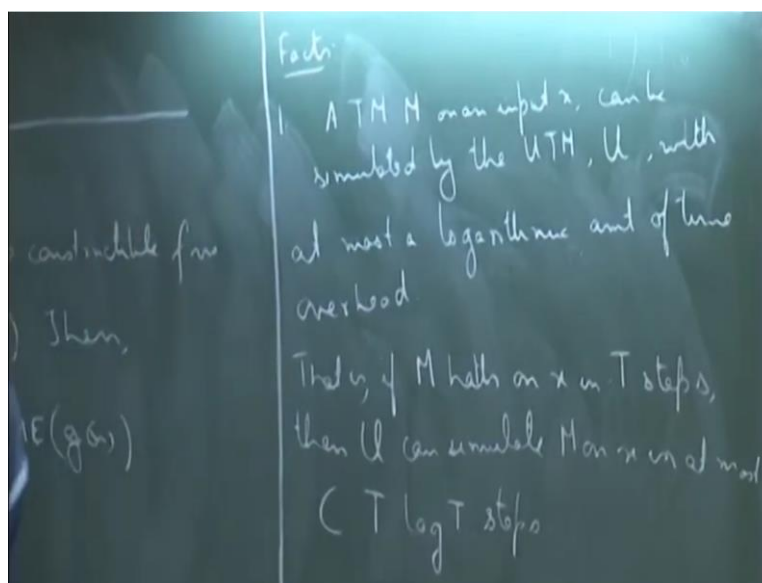 constructible fns
) Then,
ME(g(n))
Facts:
1. A TM M on an input x, can be
simulated by the UTM, U, with
at most a logarithmic amt of time
overhead.
That is, if M halts on x in T steps,
then U can simulate M on x in at most
C T log T steps